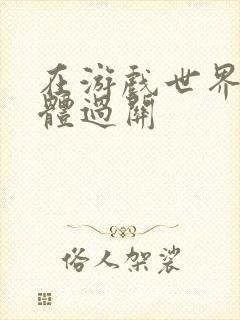 在游戲世界
體過關
俗人架裟